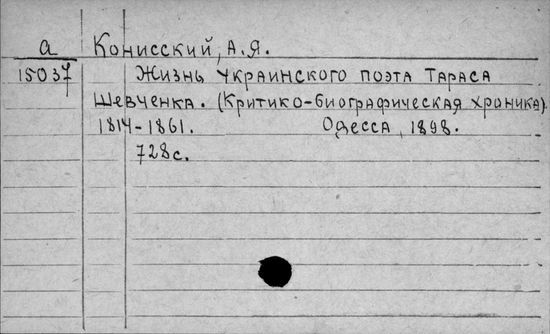 а Конисский, А.Я.
15037 Жизнь украинского поэта Тараса
Шевченка. (Критико-биографическая хроника).
1814-1861. Одесса, 1898.
728с.